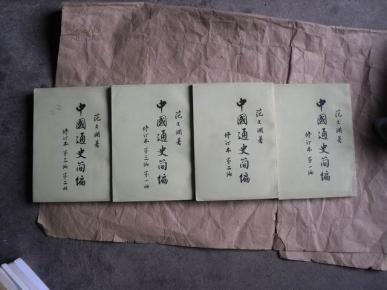 范文澜著
中國通史简編
修订本 第三编 第二册
范文澜著
中國通史简編
修订本 第三编 第一册
范文澜著
中國通史简編
修订本 第二编
范文澜著
中國通史简編
修订本 第一编